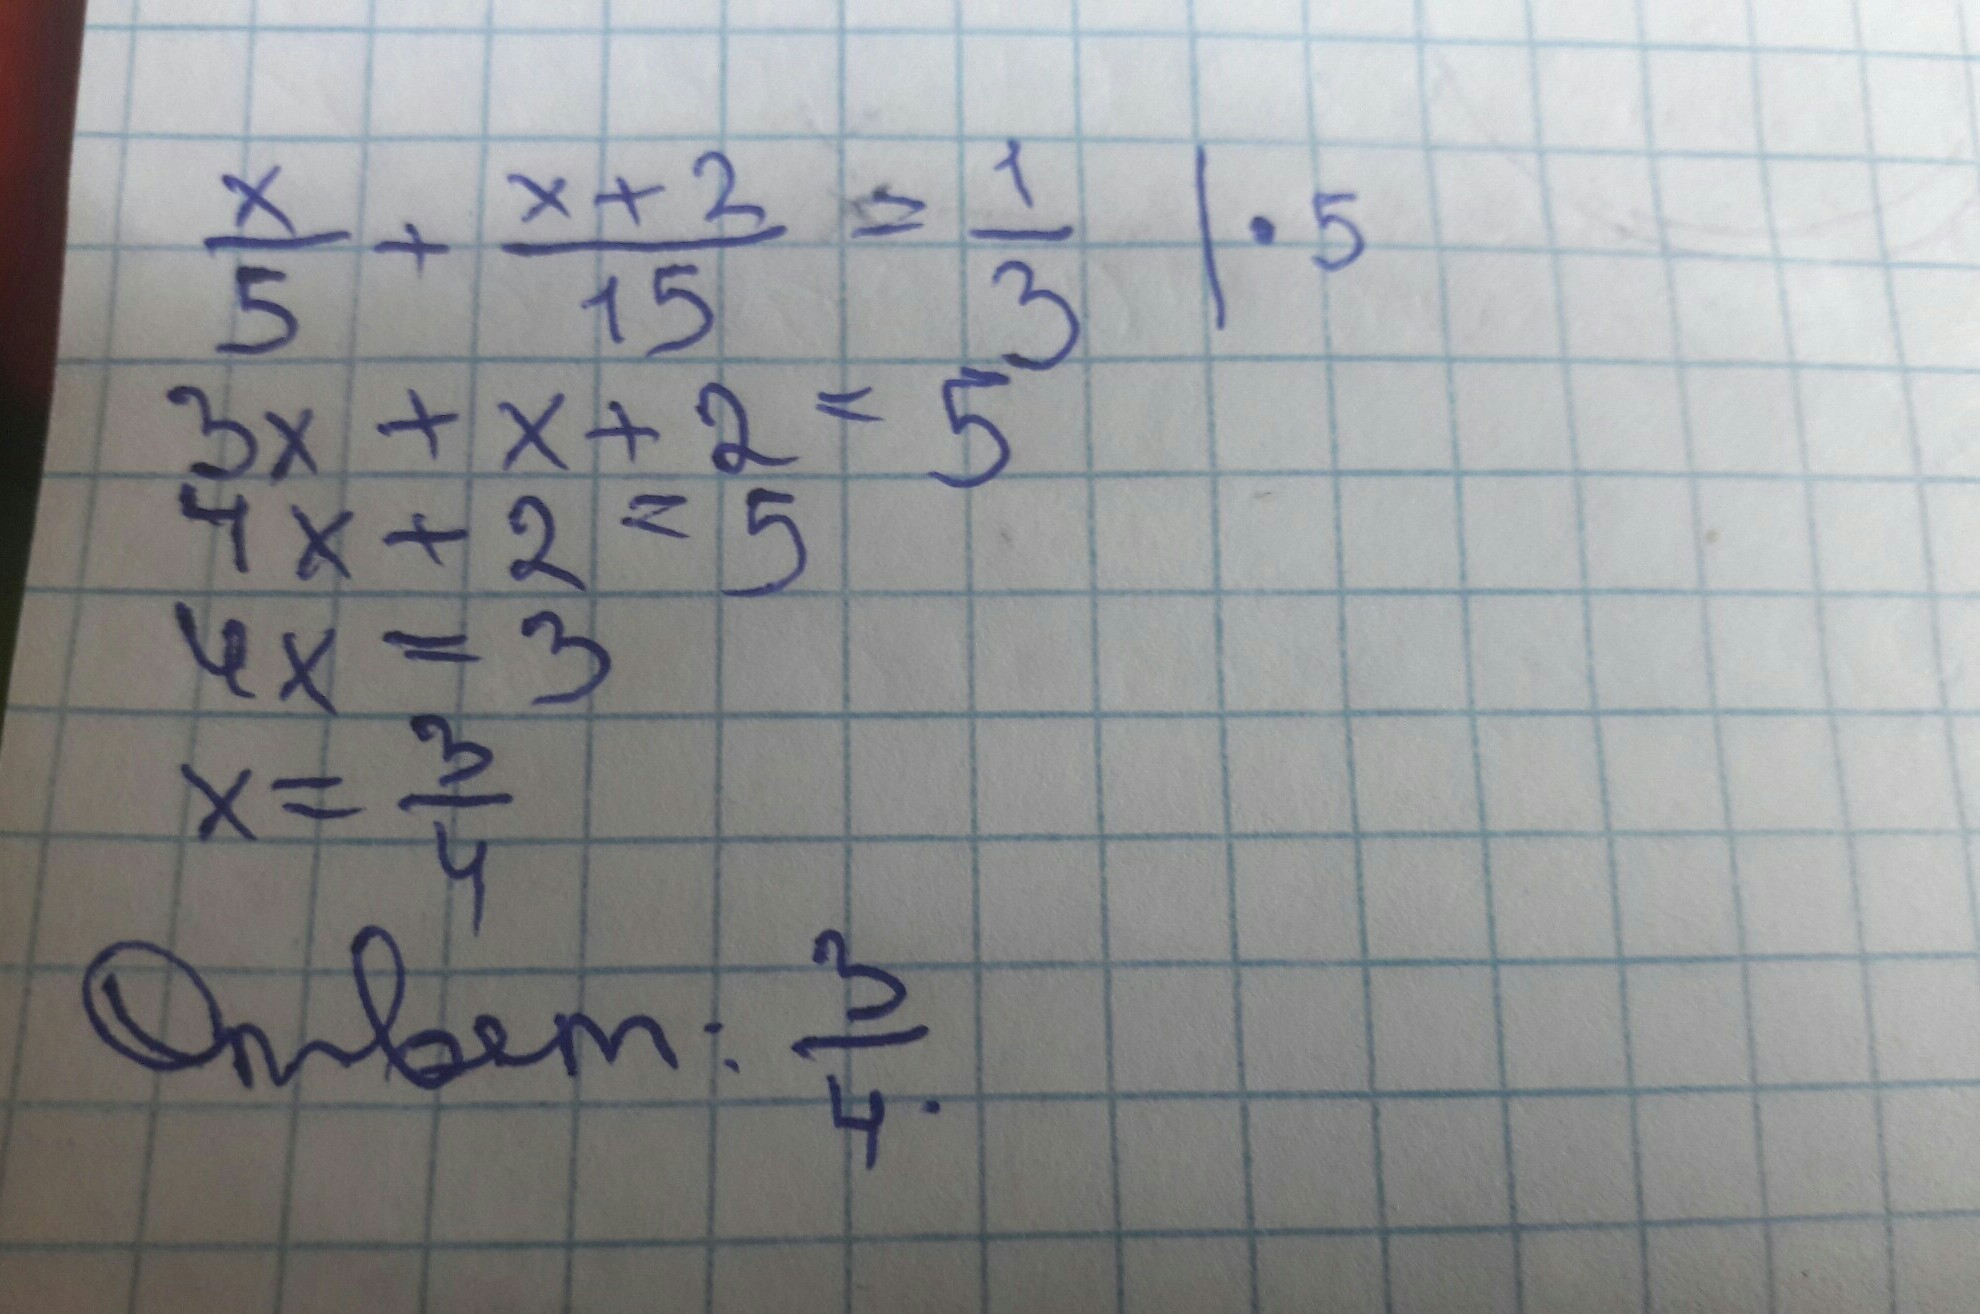 x/5 + (x+2)/15 = 1/3 | · 5
3x + x + 2 = 5
4x + 2 = 5
4x = 3
x = 3/4
Ответ: 3/4.